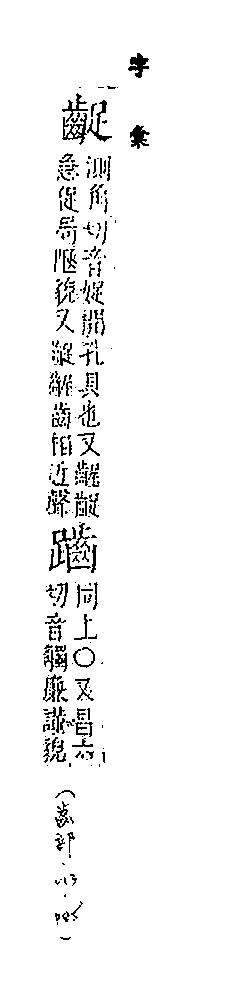 字彙
齪
測角切音娖開孔具也又齷齪
急促局陿貌又齪齪齒相近聲
䠡
同上○又昌六
切音觸廉謹貌
(齒部・